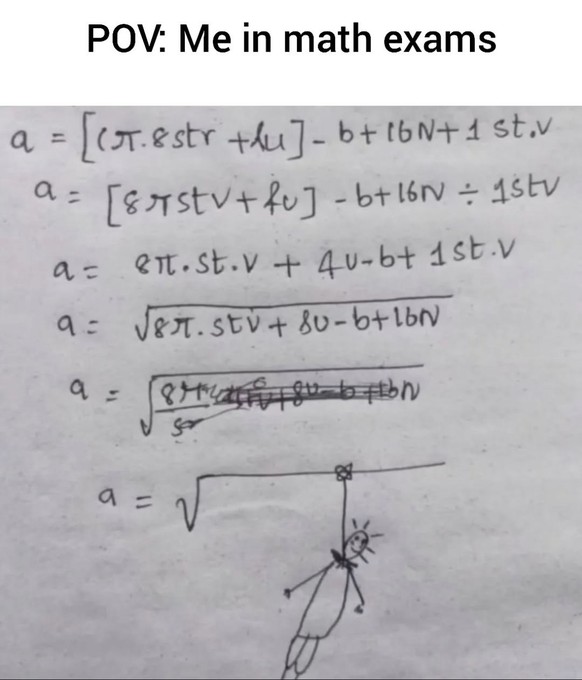 POV: Me in math exams
a = [(π.8str + 4u] - b + 16N + 1 st.v
a = [8πstv + 4u] - b + 16N ÷ 1stv
a = 8π.st.v + 4u - b + 1st.v
a = √8π.stv + 8u - b + 16N
a = √8π + 8u - b + 16N
a = √